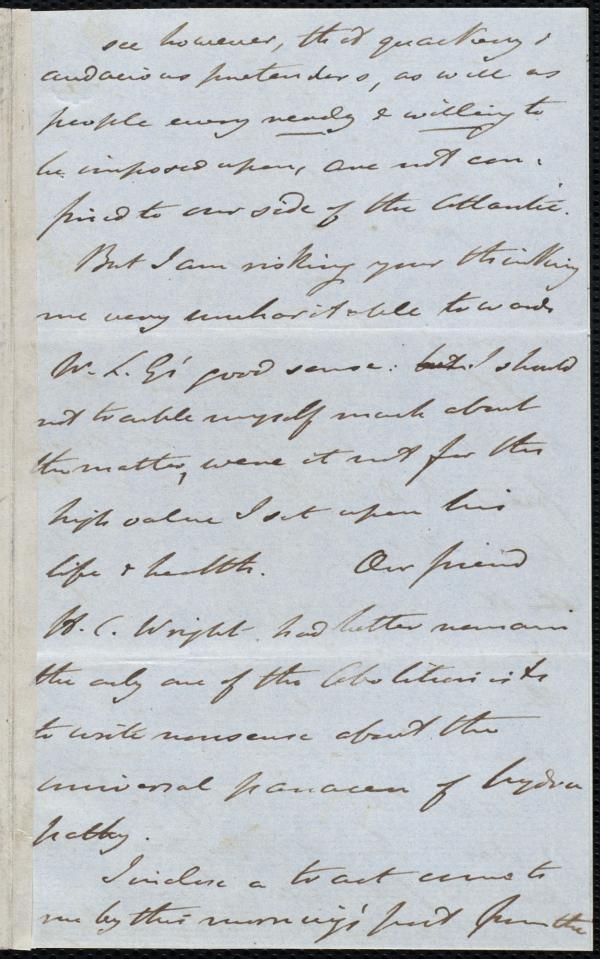 see however, that quackery &
audacious pretenders, as well as
people every ready & willing to
be imposed upon, are not con-
fined to our side of the Atlantic.
But I am risking your thinking
me very uncharitable towards
W. L. G's good sense: but I should
not trouble myself much about
the matter, were it not for the
high value I set upon his
life & health. Our friend
H. C. Wright had better remain
the only one of the Abolitionists
to write nonsense about the
universal panacea of hydro
pathy.
I inclose a tract come to
me by this morning's post from the